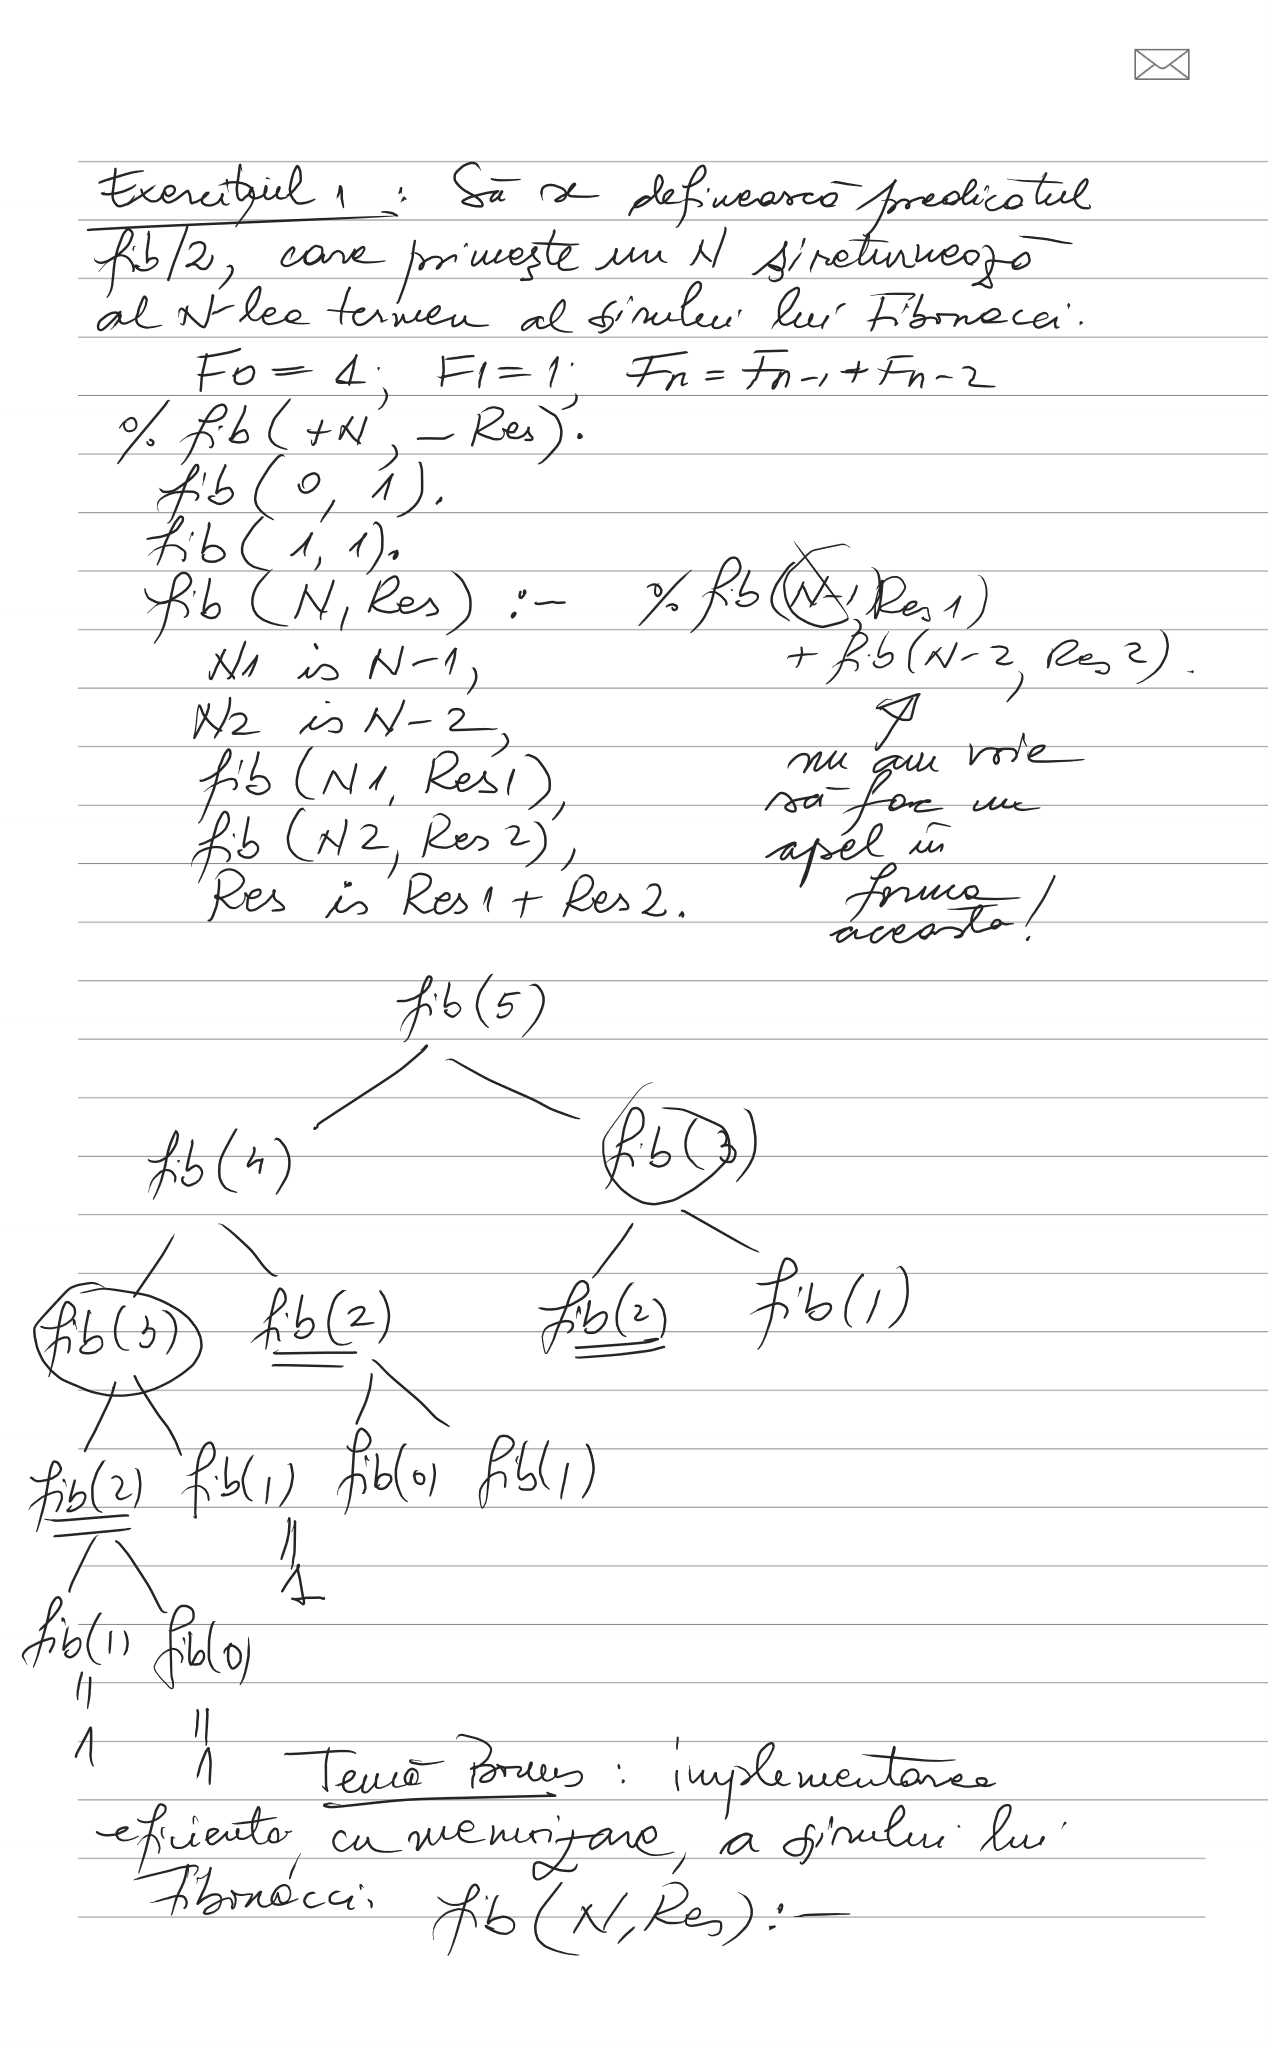 Exercițiul 1 : Să se definească predicatul
fib/2, care primește un N și returnează
al N-lea termen al șirului lui Fibonacci.
F0 = 1; F1 = 1; Fn = Fn-1 + Fn-2
% fib(+N, -Res).
fib(0, 1).
fib(1, 1).
fib(N, Res) :- % fib(N-1, Res1)
N1 is N-1, + fib(N-2, Res2).
N2 is N-2,
fib(N1, Res1), nu am voie
fib(N2, Res2), să fac un
Res is Res1 + Res2. apel în
forma
aceasta!
fib(5)
fib(4) fib(3)
fib(3) fib(2) fib(2) fib(1)
fib(2) fib(1) fib(0) fib(1)
=
1
fib(1) fib(0)
= =
1 1
Temă Bonus : implementarea
eficientă, cu memoizare, a șirului lui
Fibonacci. fib(N, Res) :-